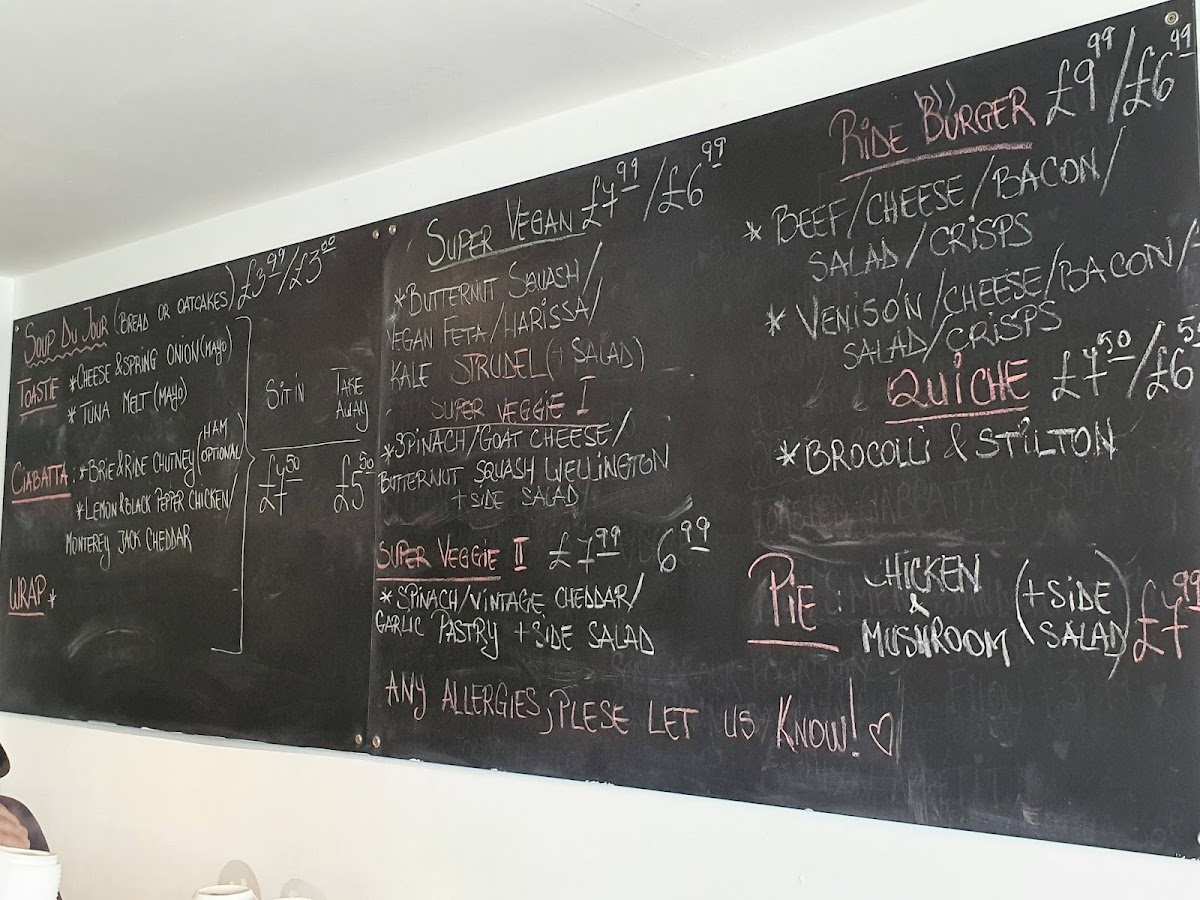 SOUP DU JOUR (BREAD OR OATCAKES) £3.99/£3.00
TOASTIE *CHEESE & SPRING ONION (MAYO)
* TUNA MELT (MAYO)
CIABATTA : *BRIE & RIDE CHUTNEY (HAM OPTIONAL)
*LEMON & BLACK PEPPER CHICKEN/
MONTEREY JACK CHEDDAR
WRAP *
SIT IN TAKE AWAY
£7.50 £5.50
SUPER VEGAN £7.99/£6.99
*BUTTERNUT SQUASH/
VEGAN FETA/HARISSA/
KALE STRUDEL (+ SALAD)
SUPER VEGGIE I
*SPINACH/GOAT CHEESE/
BUTTERNUT SQUASH WELLINGTON
+ SIDE SALAD
SUPER VEGGIE II £7.99 6.99
* SPINACH/VINTAGE CHEDDAR/
GARLIC PASTRY + SIDE SALAD
ANY ALLERGIES, PLESE LET US KNOW! ♡
RIDE BURGER £9.99/£6.99
* BEEF/CHEESE/BACON/
SALAD/CRISPS
* VENISON/CHEESE/BACON/
SALAD/CRISPS
QUICHE £7.50/£6.55
*BROCOLLI & STILTON
PIE : CHICKEN & MUSHROOM (+ SIDE SALAD) £7.99